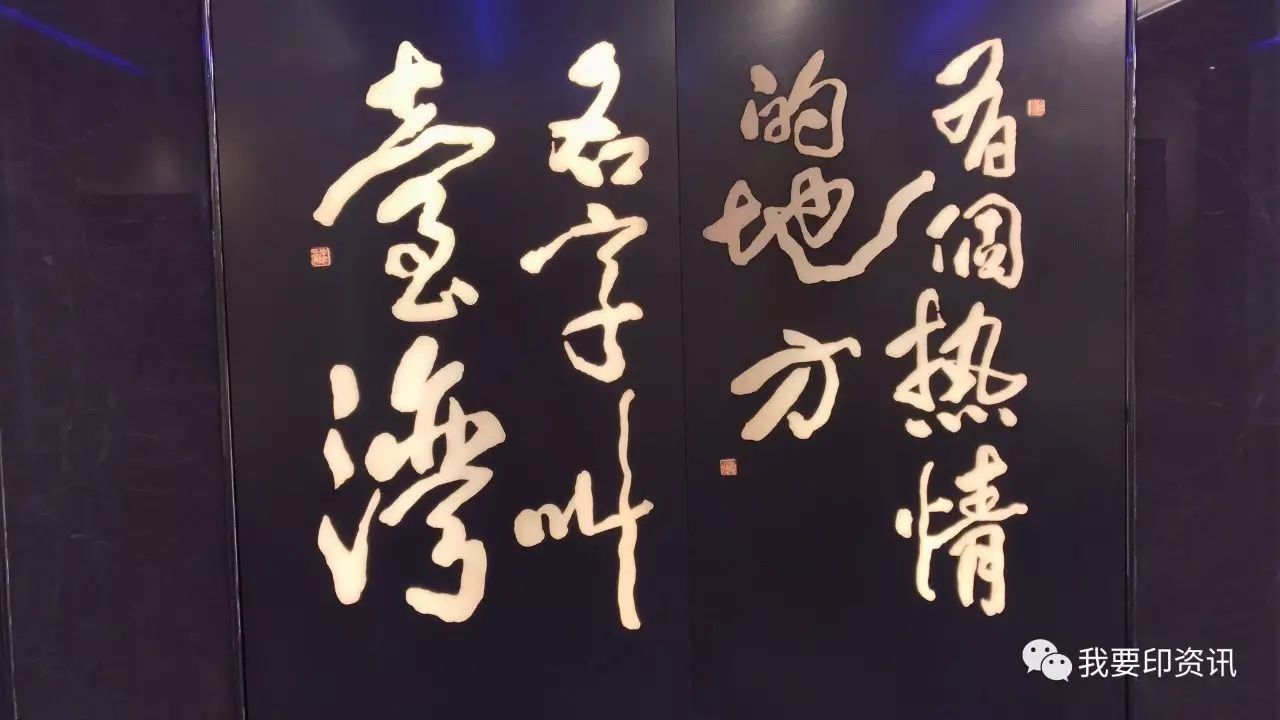 有個热情
的地方
名字叫
臺灣
我要印资讯